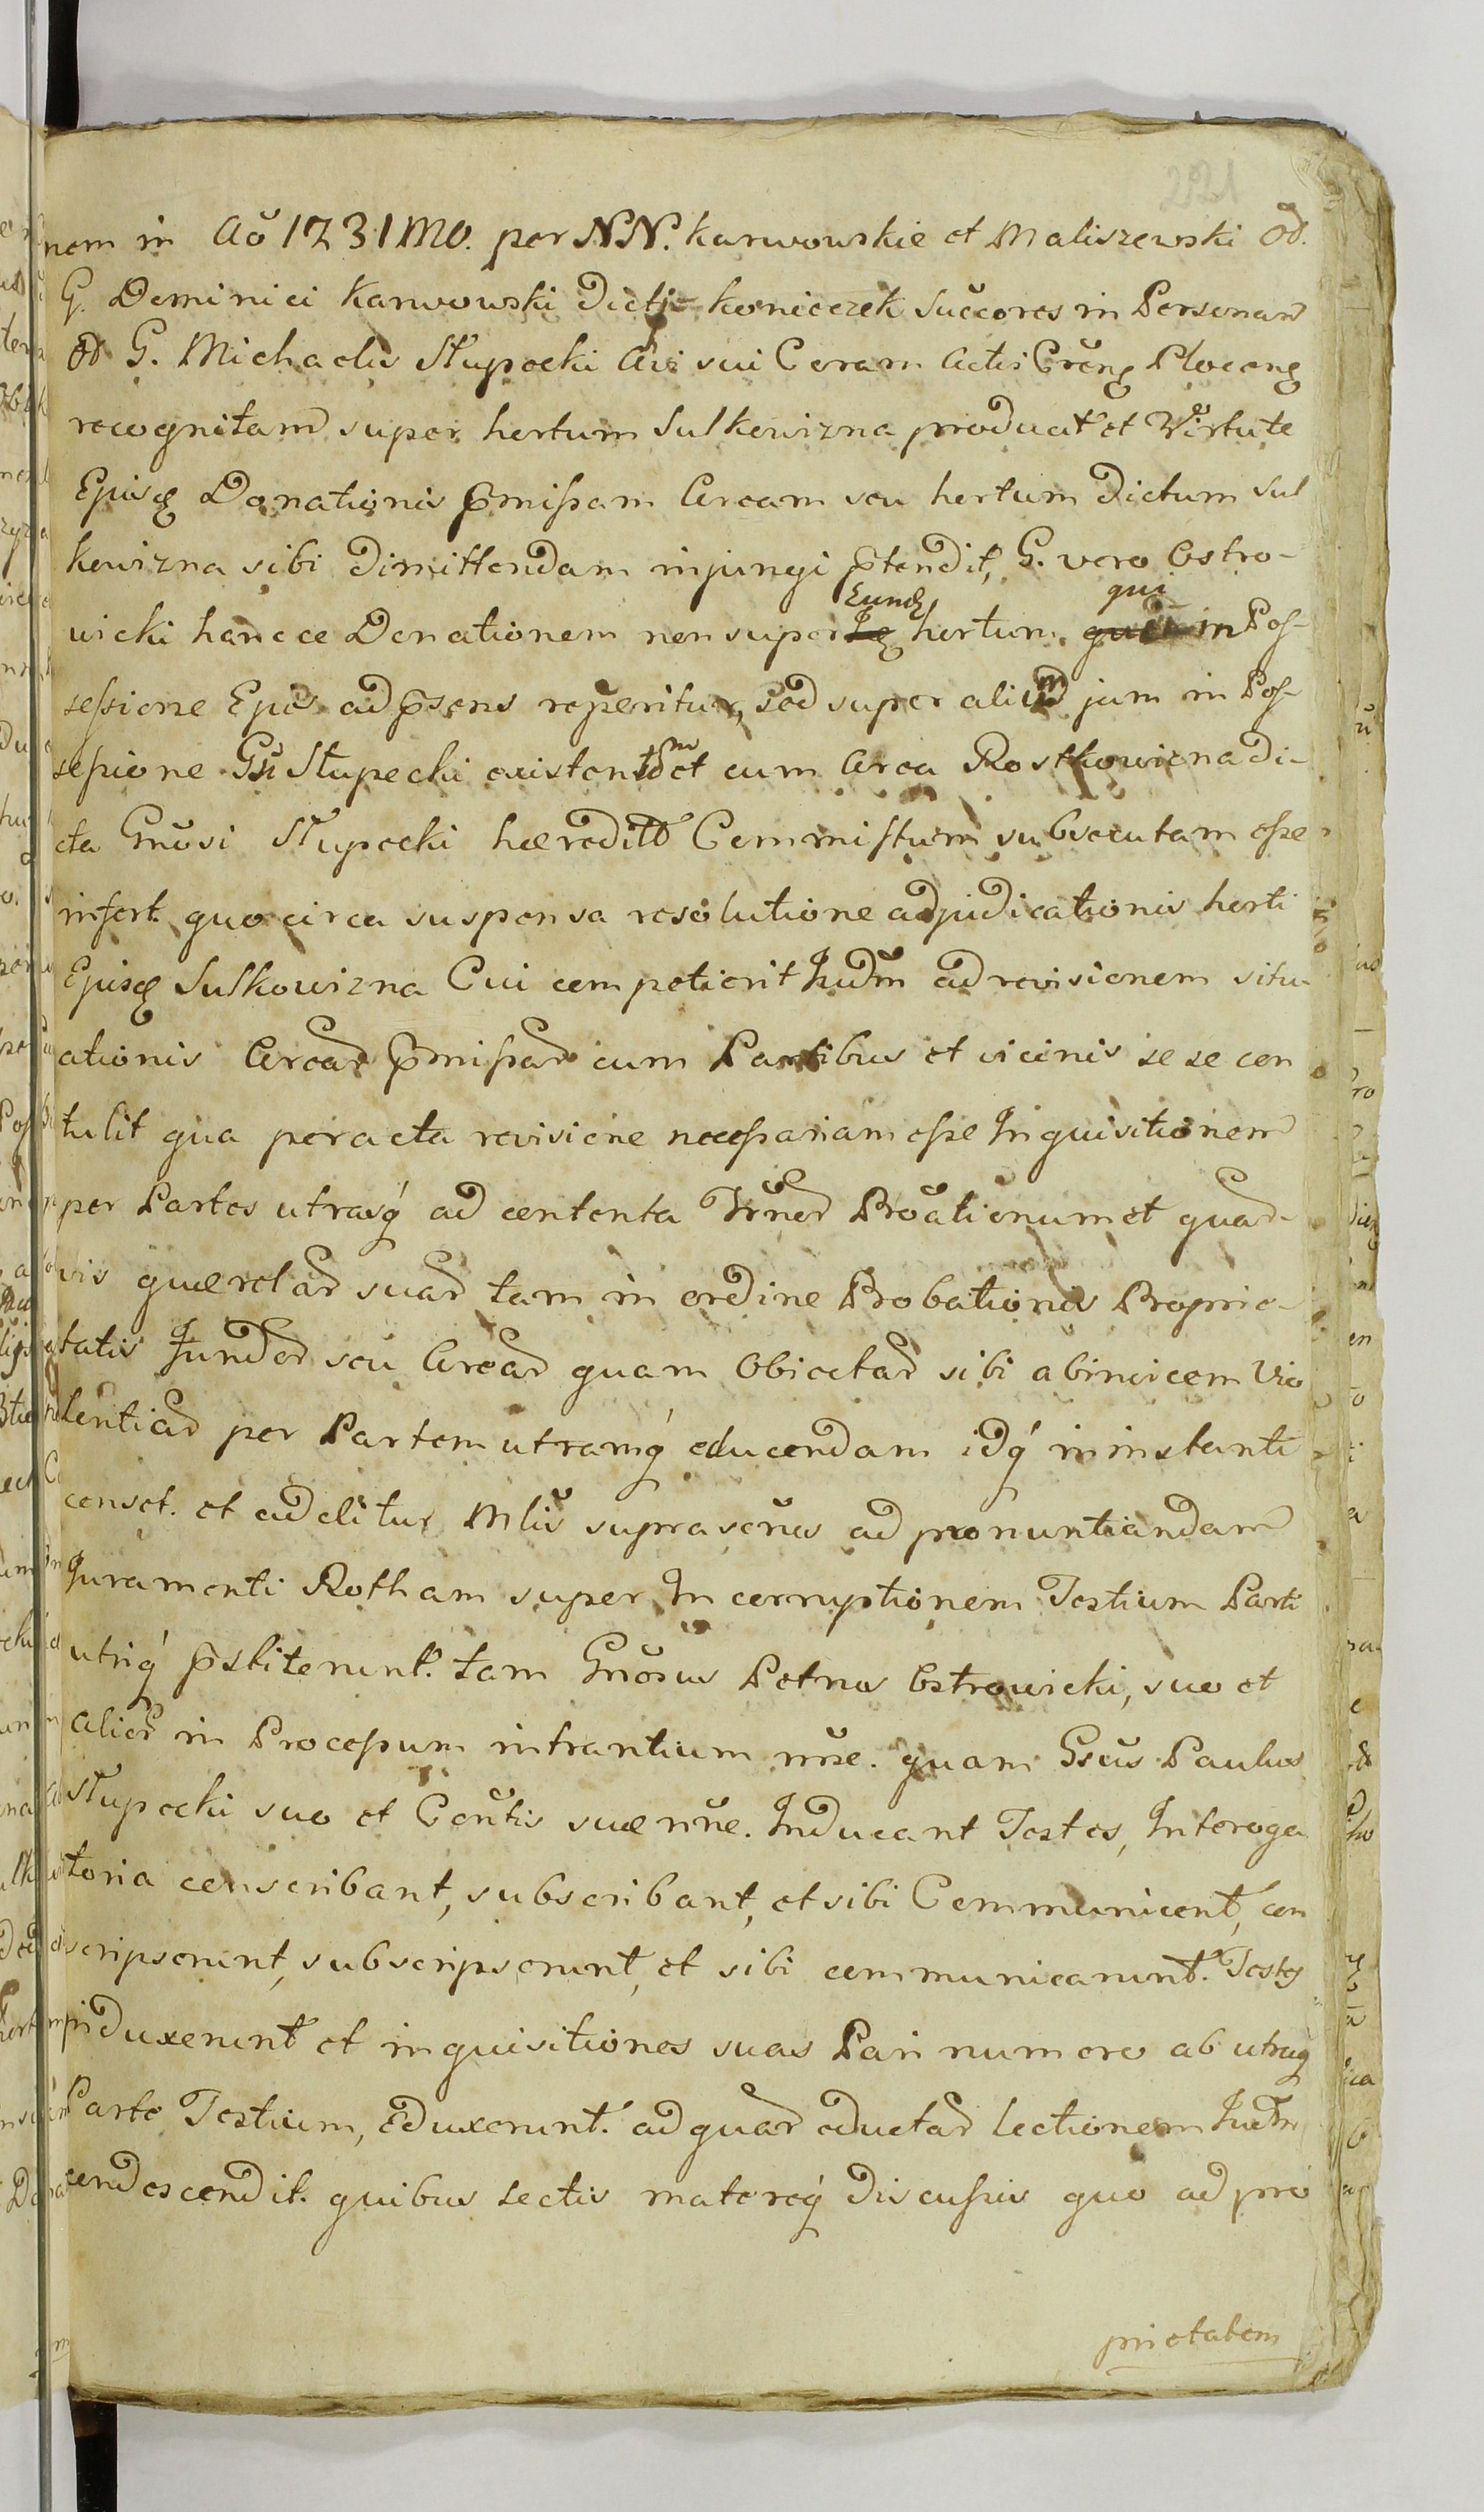 221
nem in Aō 1731mo. per NN. Karwowskie et Maliszewski od.
G. Dominici Karwowski dicti Koniczek Succores in Personam
od G. Michaelis Słupecki Avi sui Coram Actis Crēng Plocens
recognitam super hortum Sulkowizna producit et Virtute
Ejusd Donationis pmissam Aream seu hortum dictum Sul
kowizna sibi dimittendam injungi ptendit, G. vero Ostro-
wicki hancce Donationem non super Eund hortum, qui in Pos-
sessione Ejus ad psens reperitur, sed super alium jam in Pos-
sessione Gsi Słupecki existentem et cum Area Rostkowizna di-
cta Gnosi Słupecki hæredit Commistum subsecutam esse
infert. quo circa suspensa resolutione adjudicationis horti
Ejusd Sulkowizna Cui competierit Judm ad revisionem situ-
ationis Arear pmissar cum Partibus et vicinis se se con
tulit qua peracta revisione necessariam esse Inquisitionem
per Partes utrasq ad contenta Trner Proationum et quar-
vis querelar suar tam in ordine Probationis Proprie-
tatis Fundor seu Arear quam Obiectar sibi abinvicem Vio
lentiar per Partem utramq educendam idq in instanti
censet. et edelitur Mlis suprascrius ad pronuntiandam
Juramenti Rotham super Incorruptionem Testium Parti
utriq pstiterunt. tam Gnosus Petrus Ostrowicki, suo et
alior in Processum intrantium nne. quam Gsus Paulus
Słupecki suo et Contis suæ nne. Inducant Testes, Interoga
toria conscribant, subscribant, et sibi Communicent, con
scripserunt, subscripserunt, et sibi communicarunt. Testes
induxerunt et inquisitiones suas Pari numero ab utraq
Parte Testium, Eduxerunt. ad quar eductar lectionem Judm
condescendit. quibus lectis matereq discussis quo ad pro
prietatem